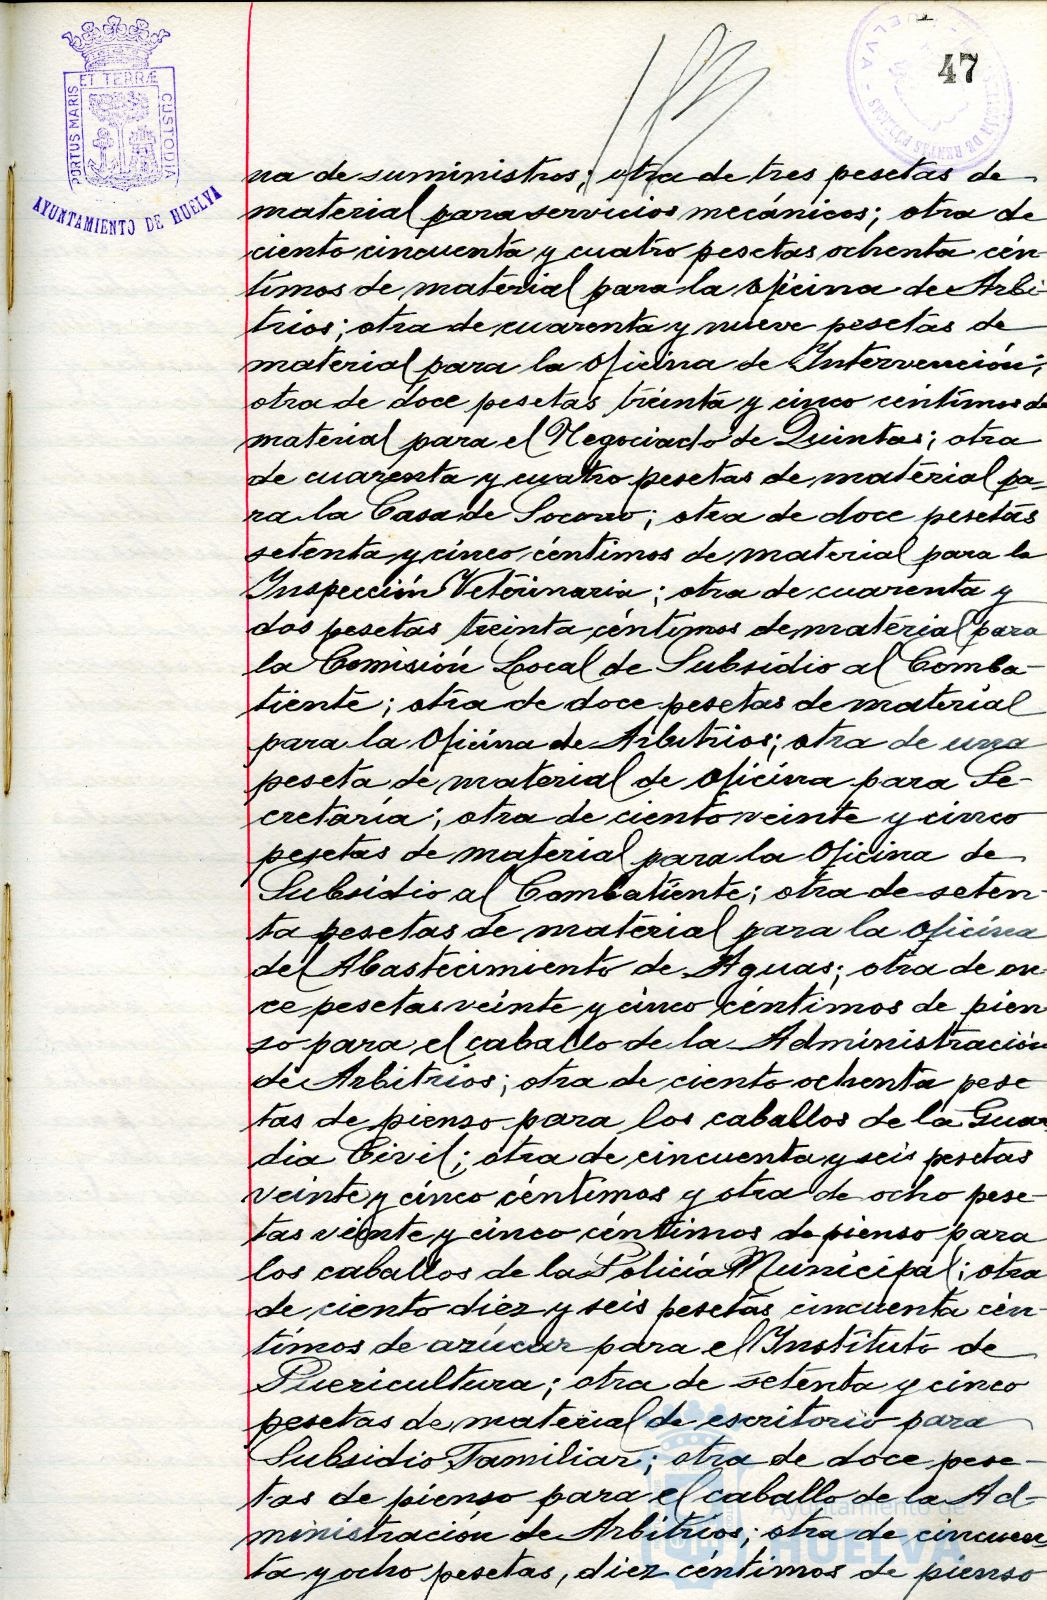 47
PORTUS MARIS ET TERRÆ CUSTODIA
AYUNTAMIENTO DE HUELVA
na de suministros; otra de tres pesetas de
material para servicios mecánicos; otra de
ciento cincuenta y cuatro pesetas ochenta cén-
timos de material para la Oficina de Arbi-
trios; otra de cuarenta y nueve pesetas de
material para la Oficina de Intervención;
otra de doce pesetas treinta y cinco céntimos de
material para el Negociado de Quintas; otra
de cuarenta y cuatro pesetas de material pa-
ra la Casa de Socorro; otra de doce pesetas
setenta y cinco céntimos de material para la
Inspección Veterinaria; otra de cuarenta y
dos pesetas treinta céntimos de material para
la Comisión Local de Subsidio al Comba-
tiente; otra de doce pesetas de material
para la Oficina de Arbitrios; otra de una
peseta de material de oficina para Se-
cretaría; otra de ciento veinte y cinco
pesetas de material para la Oficina de
Subsidio al Combatiente; otra de seten-
ta pesetas de material para la Oficina
del Abastecimiento de Aguas; otra de on-
ce pesetas veinte y cinco céntimos de pien-
so para el caballo de la Administración
de Arbitrios; otra de ciento ochenta pese
tas de pienso para los caballos de la Guar
dia Civil; otra de cincuenta y seis pesetas
veinte y cinco céntimos y otra de ocho pese-
tas veinte y cinco céntimos de pienso para
los caballos de la Policía Municipal; otra
de ciento diez y seis pesetas cincuenta cén-
timos de azúcar para el Instituto de
Puericultura; otra de setenta y cinco
pesetas de material de escritorio para
Subsidio Familiar; otra de doce pese-
tas de pienso para el caballo de la Ad-
ministración de Arbitrios; otra de cincuen
ta y ocho pesetas, diez céntimos de pienso
Ayuntamiento de
HUELVA